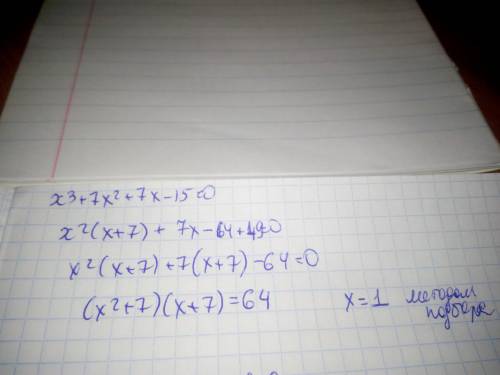 x³+7x²+7x-15=0
x²(x+7) + 7x-64+49=0
x²(x+7)+7(x+7)-64=0
(x²+7)(x+7)=64 x=1 методом
подбора